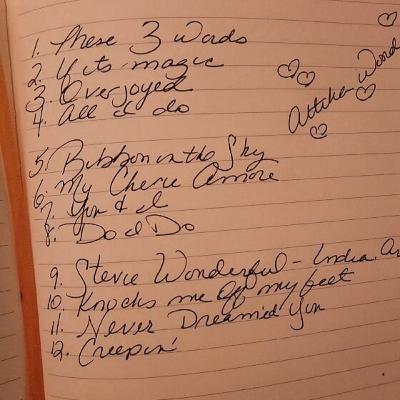 1. These 3 Words
2. If its magic
3. Overjoyed
4. All I do
5. Ribbon in the Sky
6. My Cherie Amore
7. You & I
8. Do I Do
9. Stevie Wonderful - India. Ar
10. Knocks me off my feet
11. Never Dreamed You
12. Creepin'